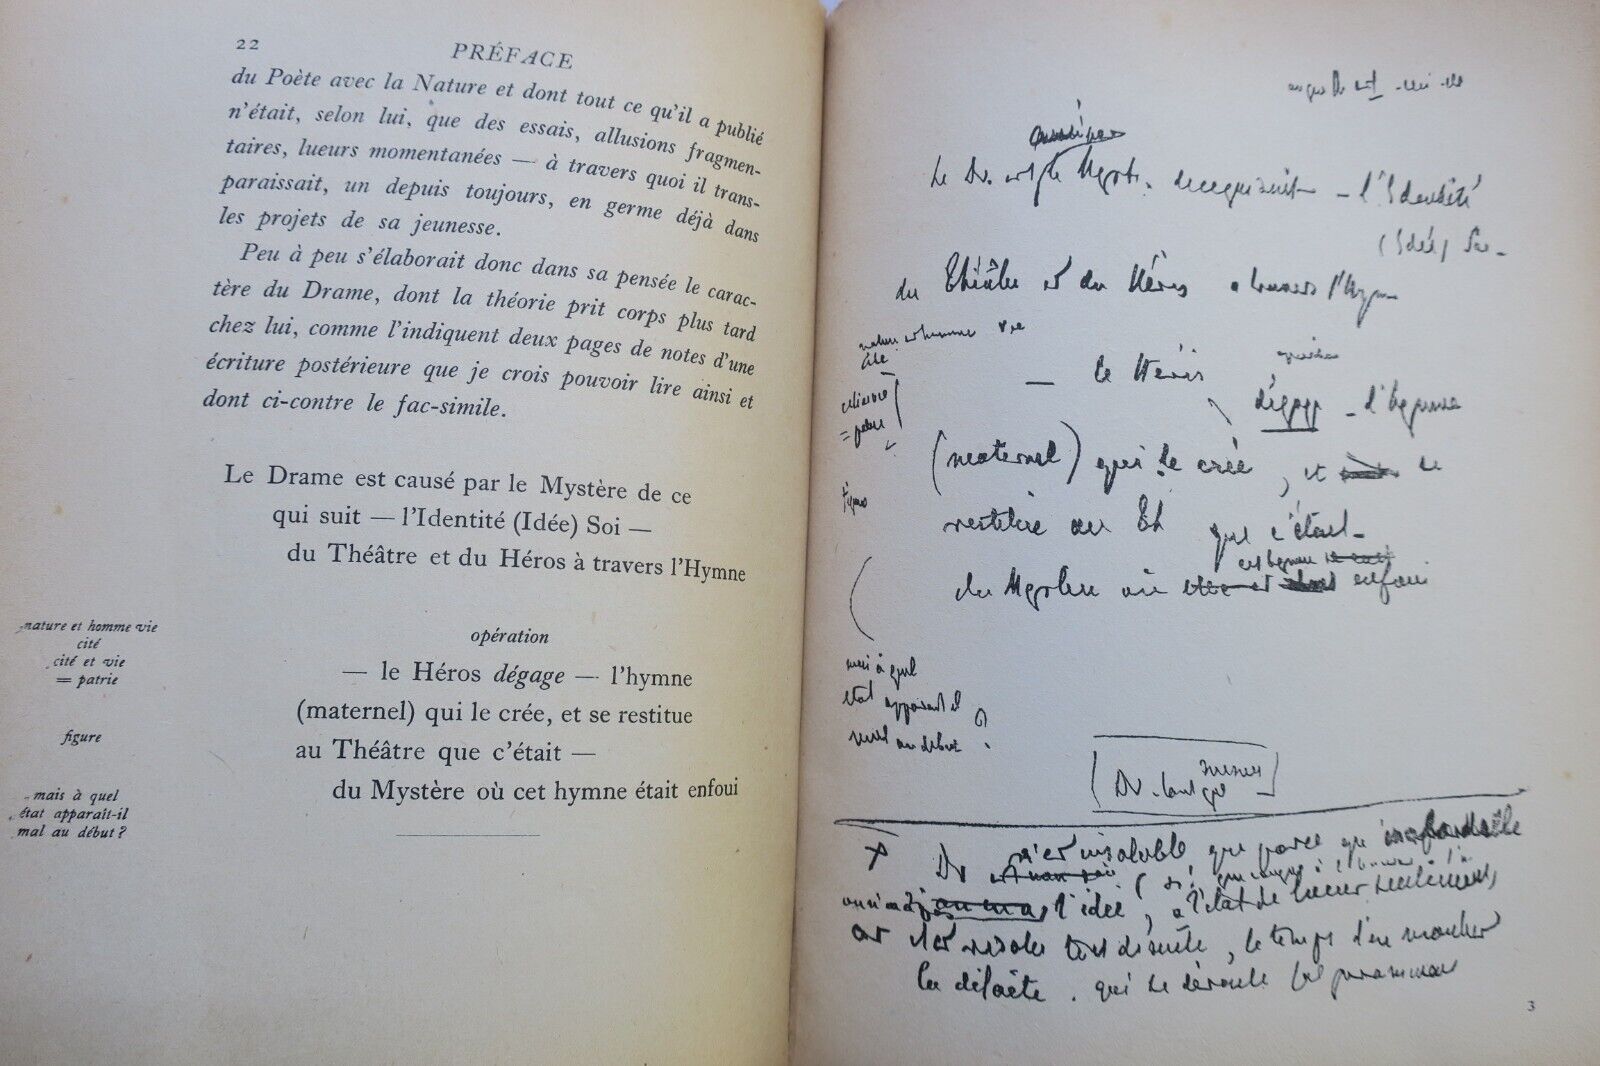 22
PRÉFACE
du Poète avec la Nature et dont tout ce qu'il a publié
n'était, selon lui, que des essais, allusions fragmen-
taires, lueurs momentanées — à travers quoi il trans-
paraissait, un depuis toujours, en germe déjà dans
les projets de sa jeunesse.
Peu à peu s'élaborait donc dans sa pensée le carac-
tère du Drame, dont la théorie prit corps plus tard
chez lui, comme l'indiquent deux pages de notes d'une
écriture postérieure que je crois pouvoir lire ainsi et
dont ci-contre le fac-simile.
Le Drame est causé par le Mystère de ce
qui suit — l'Identité (Idée) Soi —
du Théâtre et du Héros à travers l'Hymne
nature et homme vie
cité
cité et vie
= patrie
figure
mais à quel
état apparaît-il
mal au début ?
opération
— le Héros dégage — l'hymne
(maternel) qui le crée, et se restitue
au Théâtre que c'était —
du Mystère où cet hymne était enfoui
Le Dr. est le Myst. de ce qui suit — l'Identité
(Idée) Soi —
du Théâtre et du Héros à travers l'hymne
nature et homme vie
cité
= patrie
opération
— le Héros dégage — l'hymne
(maternel) qui le crée, et se
restitue au Th que c'était —
figure
du Mystère où enfoui
mais à quel
état apparaît il
mal au début ?
Dr.
Dr n'est insoluble que parce qu'inabordable
l'idée, à l'état de lueur seulement,
et est résolu tout de suite, le temps d'en montrer
la défaite, qui se déroule
3